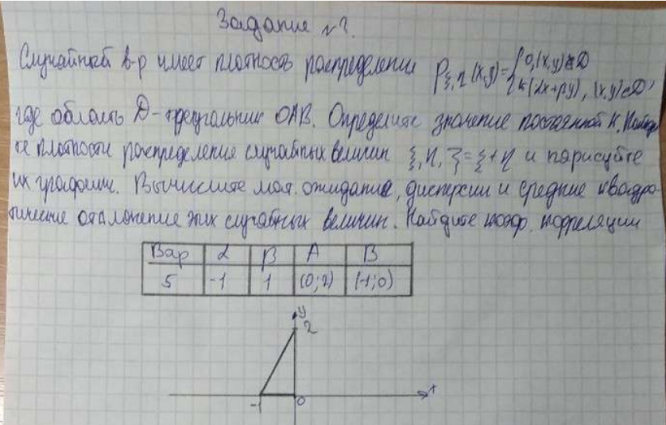 Задание №2.
Случайный в-р имеет плотность распределения Pξ,η(x,y)={0,(x,y)∉D
k(αx+βy), (x,y)∈D,
где область D-треугольник OAB. Определите значение постоянной k. Найди
те плотности распределение случайных величин ξ, η, ζ=ξ+η и нарисуйте
их графики. Вычислите мат. ожидание, дисперсии и средние квадра
тические отклонение этих случайных величин. Найдите коэф. корреляции
Вар α β A B
5 -1 1 (0;2) (-1;0)
y
2
-1 0 x